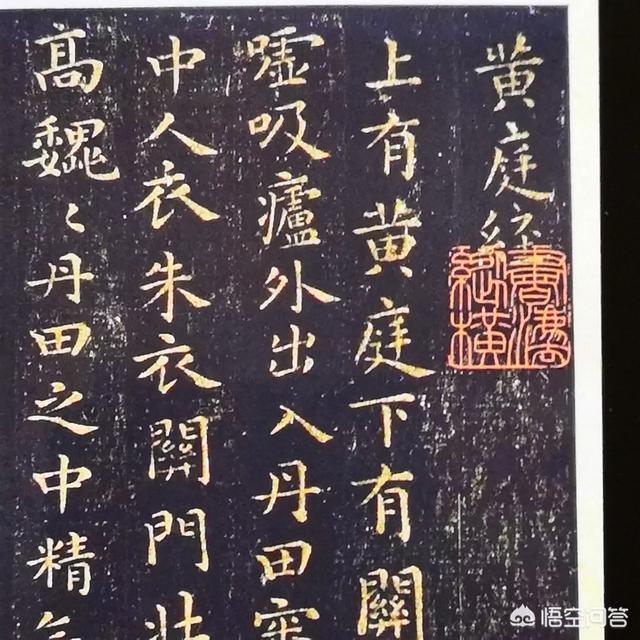 黄庭經
上有黄庭下有關
嘘吸廬外出入丹田審
中人衣朱衣關門壯
高巍〻丹田之中精氣
書濤縱橫
悟空问答